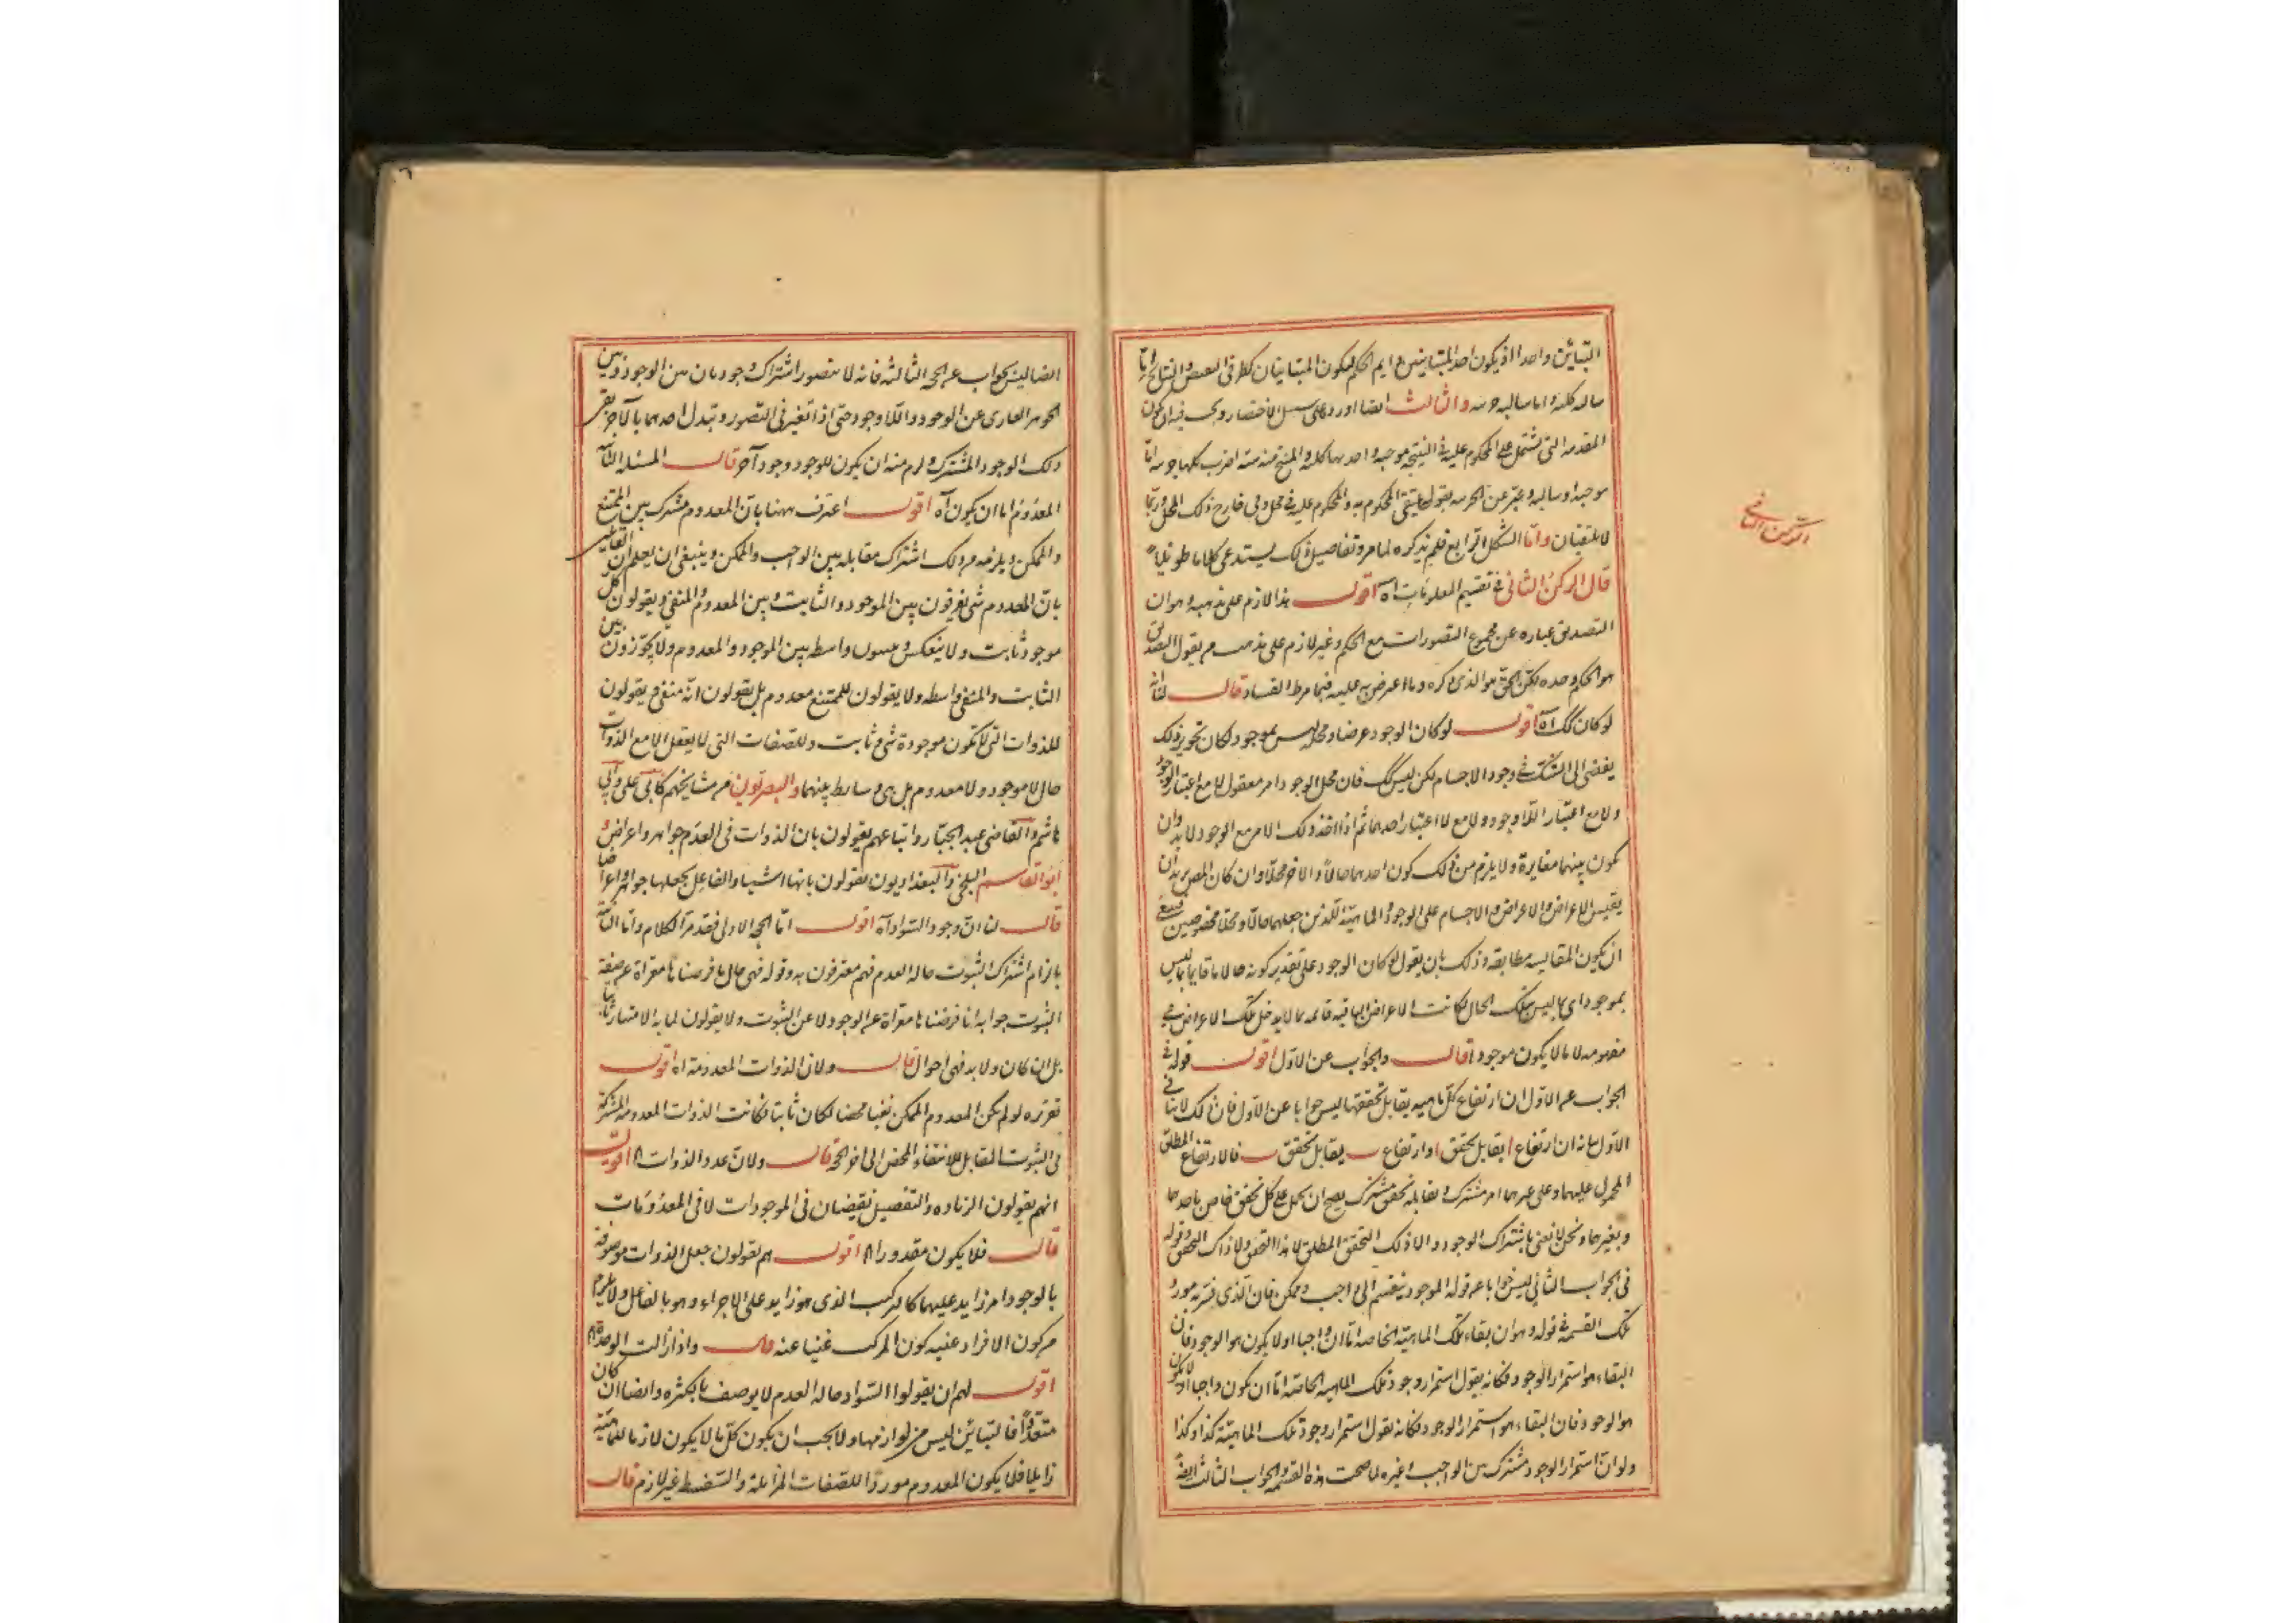 التباين واحدا اذ يكون احد المتباينين
سالبه كليه واما سالبه جزئيه والثالث ايضا اورده على سبيل الاختصار ويجب فيه ان يكون
المقدمه التى تشتمل على المحكوم عليه فى النتيجه موجبه واحديهما كليه والمنتج منه سته اضرب كلها جزئيه امّا
موجبه او سالبه وعبّر عن الجزئيه بقوله يلتقى المحكوم به والمحكوم عليه فى محل وفى خارج ذلك المحل ربّما
لا يلتقيان وامّا الشكل الرابع فلم يذكره لما مر وتفاصيل ذلك يستدعى كلاما طويلاً
قال الركن الثانى فى تقسيم المعلومات اه اقول هذا لازم على مذهبه وهو ان
التصديق عباره عن مجموع التصورات مع الحكم وغير لازم على مذهب من يقول التصديق
هو الحكم وحده لكن الحق هو الذى ذكره وما اعترض به عليه فيما مر ظ الفساد قال لنا انه
لو كان كك اه اقول لو كان الوجود عرضا ومحله ليس بموجود لكان تجويز ذلك
يفضى الى الشك فى وجود الاجسام لكن ليس كك فان محل الوجود امر معقول لا مع اعتبار الوجود
ولا مع اعتبار اللاوجود ولا مع لا اعتبار احدهما ثم اذا اخذ ذلك الامر مع الوجود لا بد وان
يكون بينهما مغايرة ولا يلزم من ذلك كون احدهما حالاً والاخر محلا وان كان المص يريد ان
يقيس الاعراض والاجسام على الوجود والماهيّة اللذين جعلهما حالا ومحلا مخصوصين فينبغى
ان يكون المقايسه مطابقه وذلك بان يقول لو كان الوجود على تقدير كونه حالا ما قايما بما ليس
بموجود اى بما ليس بتلك الحال لكانت الاعراض الباقيه قائمه بما لا يدخل تلك الاعراض فى
مفهومه لا بما لا يكون موجودا قال والجواب عن الاول اقول قوله فى
الجواب عن الاول ان ارتفاع كل ماهيه يقابل تحققها ليس جوابا عن الاول فان ذلك لا ينافى
الاول بيانه ان ارتفاع ا يقابل تحقق ا وارتفاع ب يقابل تحقق ب فالارتفاع المطلق
المحمول عليهما وعلى غيرهما امر مشترك ويقابله تحقق مشترك يصح ان يحمل على كل تحقق خاص باحدهما
وبغيرهما ونحن لا نعنى باشتراك الوجود الا ذلك التحقق المطلق لا هذا التحقق ولا ذاك التحقق وقوله
فى الجواب الثانى ليس جوابا عن قوله الموجود ينقسم الى واجب وممكن فان الذى فسّر به مورد
تلك القسمة فى قوله وهو ان بقاء تلك الماهيّة الخاصه امّا ان واجبا او لا يكون هو الوجود فان
البقاء هو استمرار الوجود فكانه يقول استمرار وجود تلك الماهيه الخاصّه امّا ان يكون واجبا او لا يكون
هو الوجود فان البقاء هو استمرار الوجود فكانه نقول استمرار وجود تلك الماهيّة كذا وكذا
ولو ان استمرار الوجود مشترك بين الواجب وغيره لما صحت هذه القسمه والجواب الثالث ايضا
الركن الثانى
ايضا ليس بجواب عن الحجه الثالثه فانه لا يتصور اشتراك وجود ما من الوجود وبين
الجوهر العارى عن الوجود واللاوجود حتى اذا تغير فى التصور وتبدل احدهما بالاخر بقى
ذلك الوجود المشترك ولم يلزم منه ان يكون للوجود وجود اخر قال المسئلة الثانية
المعدوم اما ان يكون اه اقول اعترف ههنا بان المعدوم مشترك بين الممتنع
والممكن ويلزمه من ذلك اشتراك مقابله بين الواجب والممكن وينبغى ان يعلم ان القائلين
بان المعدوم شى يفرقون بين الموجود والثابت وبين المعدوم والمنفى ويقولون كل
موجود ثابت ولا ينعكس ويثبتون واسطه بين الموجود والمعدوم ولا يجوّزون بين
الثابت والمنفى واسطه ولا يقولون للممتنع معدوم بل يقولون انه منفى ويقولون
للذوات التى لا تكون موجودة شى وثابت وللصفات التى لا يعقل الا مع الذوات
حال لا موجود ولا معدوم بل هى وسائط بينهما والبصريون من مشايخهم كابى على وابى
هاشم والقاضى عبد الجبار واتباعهم يقولون بان الذوات فى العدم جواهر واعراض و
ابو القاسم البلخى والبغداديون يقولون بانها اشياء والفاعل يجعلها جواهر واعراضا
قال لنا ان وجود السواد اه اقول امّا الحجه الاولى فقد مر الكلام وامّا الثانيه
بالزام اشتراك الثبوت حاله العدم فهم معترفون به وقوله فهى حال ما فرضناها معراة عن صفة
الثبوت جوابه انا فرضناها معراة عن الوجود لا عن الثبوت ولا يقولون لما به الامتياز ثابتا
بل ان كان ولا بد فهى احوال قال ولان الذوات المعدومة اه اقول
تقريره لو لم يكن المعدوم الممكن نفيا محضا لكان ثابتا فكانت الذوات المعدومه المشتركة
فى الثبوت المقابل للانتفاء المحض الى اخر الحجه قال ولان عدد الذوات اه اقول
انهم يقولون الزياده والتفصيل يقتضيان فى الموجودات لا فى المعدومات
قال فلا يكون مقدورا اه اقول هم يقولون جعل الذوات موصوفة
بالوجود امر زايد عليهما كالتركيب الذى هو زايد على الاجزاء وهو بالفاعل ولا يلزم
من كون الافراد غنيه كون المركب غنيا عنه قال واذا زالت الوحدة اه
اقول لهم ان يقولوا السواد حاله العدم لا يوصف بالكثره وايضا ان كان
متعدّدا فالتباين ليس من لوازمها ولا يجب ان يكون كل ما لا يكون لازما للماهيّة
زايلا فلا يكون المعدوم موردا للصفات المزايلة والتسفسط غير لازم قال